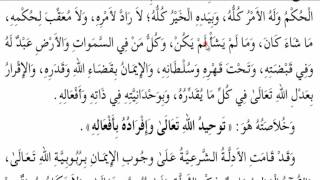 الْحُكْمُ وَلَهُ الأَمْرُ كُلُّهُ، وَبِيَدِهِ الْخَيْرُ كُلُّهُ؛ لاَ رَادَّ لأَمْرِهِ، وَلاَ مُعَقِّبَ لِحُكْمِهِ،
مَا شَاءَ كَانَ، وَمَا لَمْ يَشَأْ لَمْ يَكُنْ، وَكُلُّ مَنْ فِي السَّمَوَاتِ وَالأَرْضِ عَبْدٌ لَهُ
وَفِي قَبْضَتِهِ، وَتَحْتَ قَهْرِهِ وَسُلْطَانِهِ، وَالإِيمَانُ بِقَضَاءِ اللهِ وَقَدَرِهِ، وَالإِقْرَارُ
بِعَدْلِ اللهِ تَعَالَىٰ فِي كُلِّ مَا يُقَدِّرُهُ، وَبِوَحْدَانِيَّتِهِ تَعَالَىٰ فِي ذَاتِهِ وَأَفْعَالِهِ.
وَخُلاَصَتُهُ هُوَ: «تَوحِيدُ اللهِ تَعَالَىٰ وَإِفْرَادُهُ بِأَفْعَالِهِ».
وَقَدْ قَامَتِ الأَدِلَّةُ الشَّرْعِيَّةُ عَلَىٰ وُجُوبِ الإِيمَانِ بِرُبُوبِيَّةِ اللهِ تَعَالَىٰ،